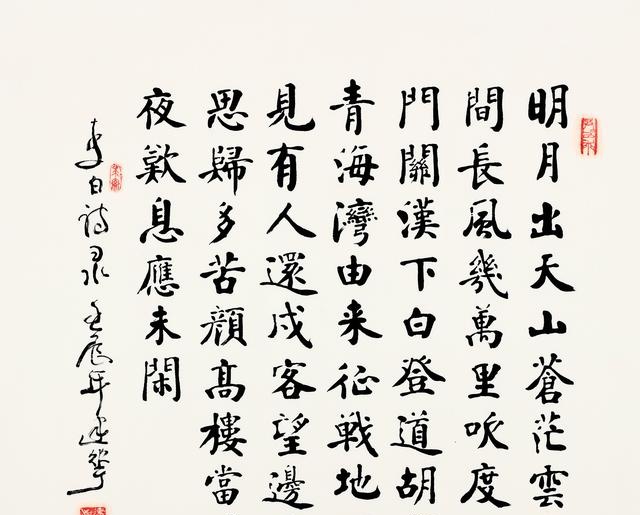 明月出天山蒼茫雲
間長風幾萬里吹度
門關漢下白登道胡
青海灣由来征戰地
見有人還戍客望邊
思歸多苦顔髙樓當
夜歎息應未閑
李白詩录壬辰年建華